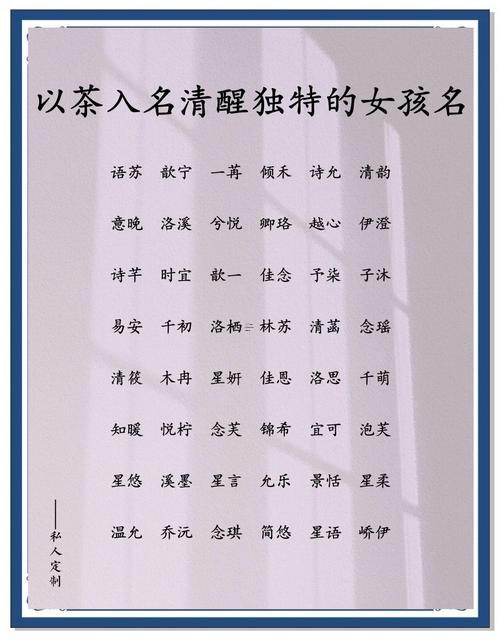 以茶入名清醒独特的女孩名
语苏 歆宁 一苒 倾禾 诗允 清韵
意晚 洛溪 兮悦 卿珞 越心 伊澄
诗芊 时宜 歆一 佳念 予柒 子沐
易安 千初 洛栖 林苏 清菡 念瑶
清筱 木冉 星妍 佳恩 洛思 千萌
知暖 悦柠 念芙 锦希 宜可 泡芙
星悠 溪墨 星言 允乐 景恬 星柔
温允 乔沅 念琪 简悠 星语 峤伊
——私人定制